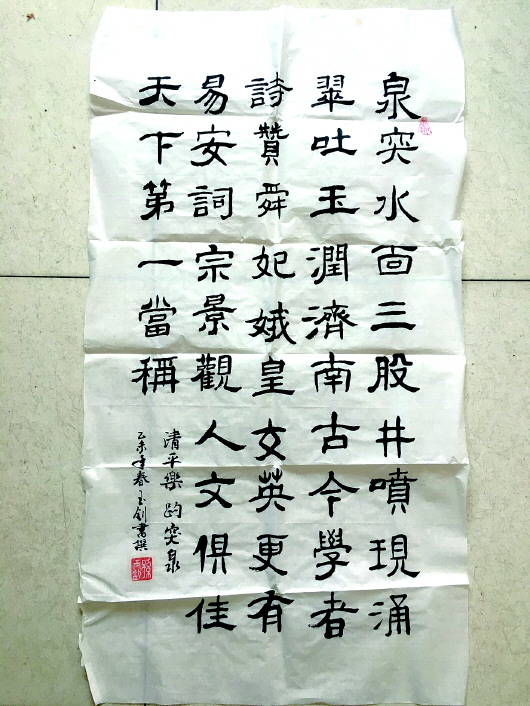 泉突水靣三股井噴現涌
翠吐玉潤濟南古今學者
詩贊舜妃娥皇女英更有
易安詞宗景觀人文俱佳
天下第一當稱
清平樂 趵突泉
乙未年春玉釗書撰